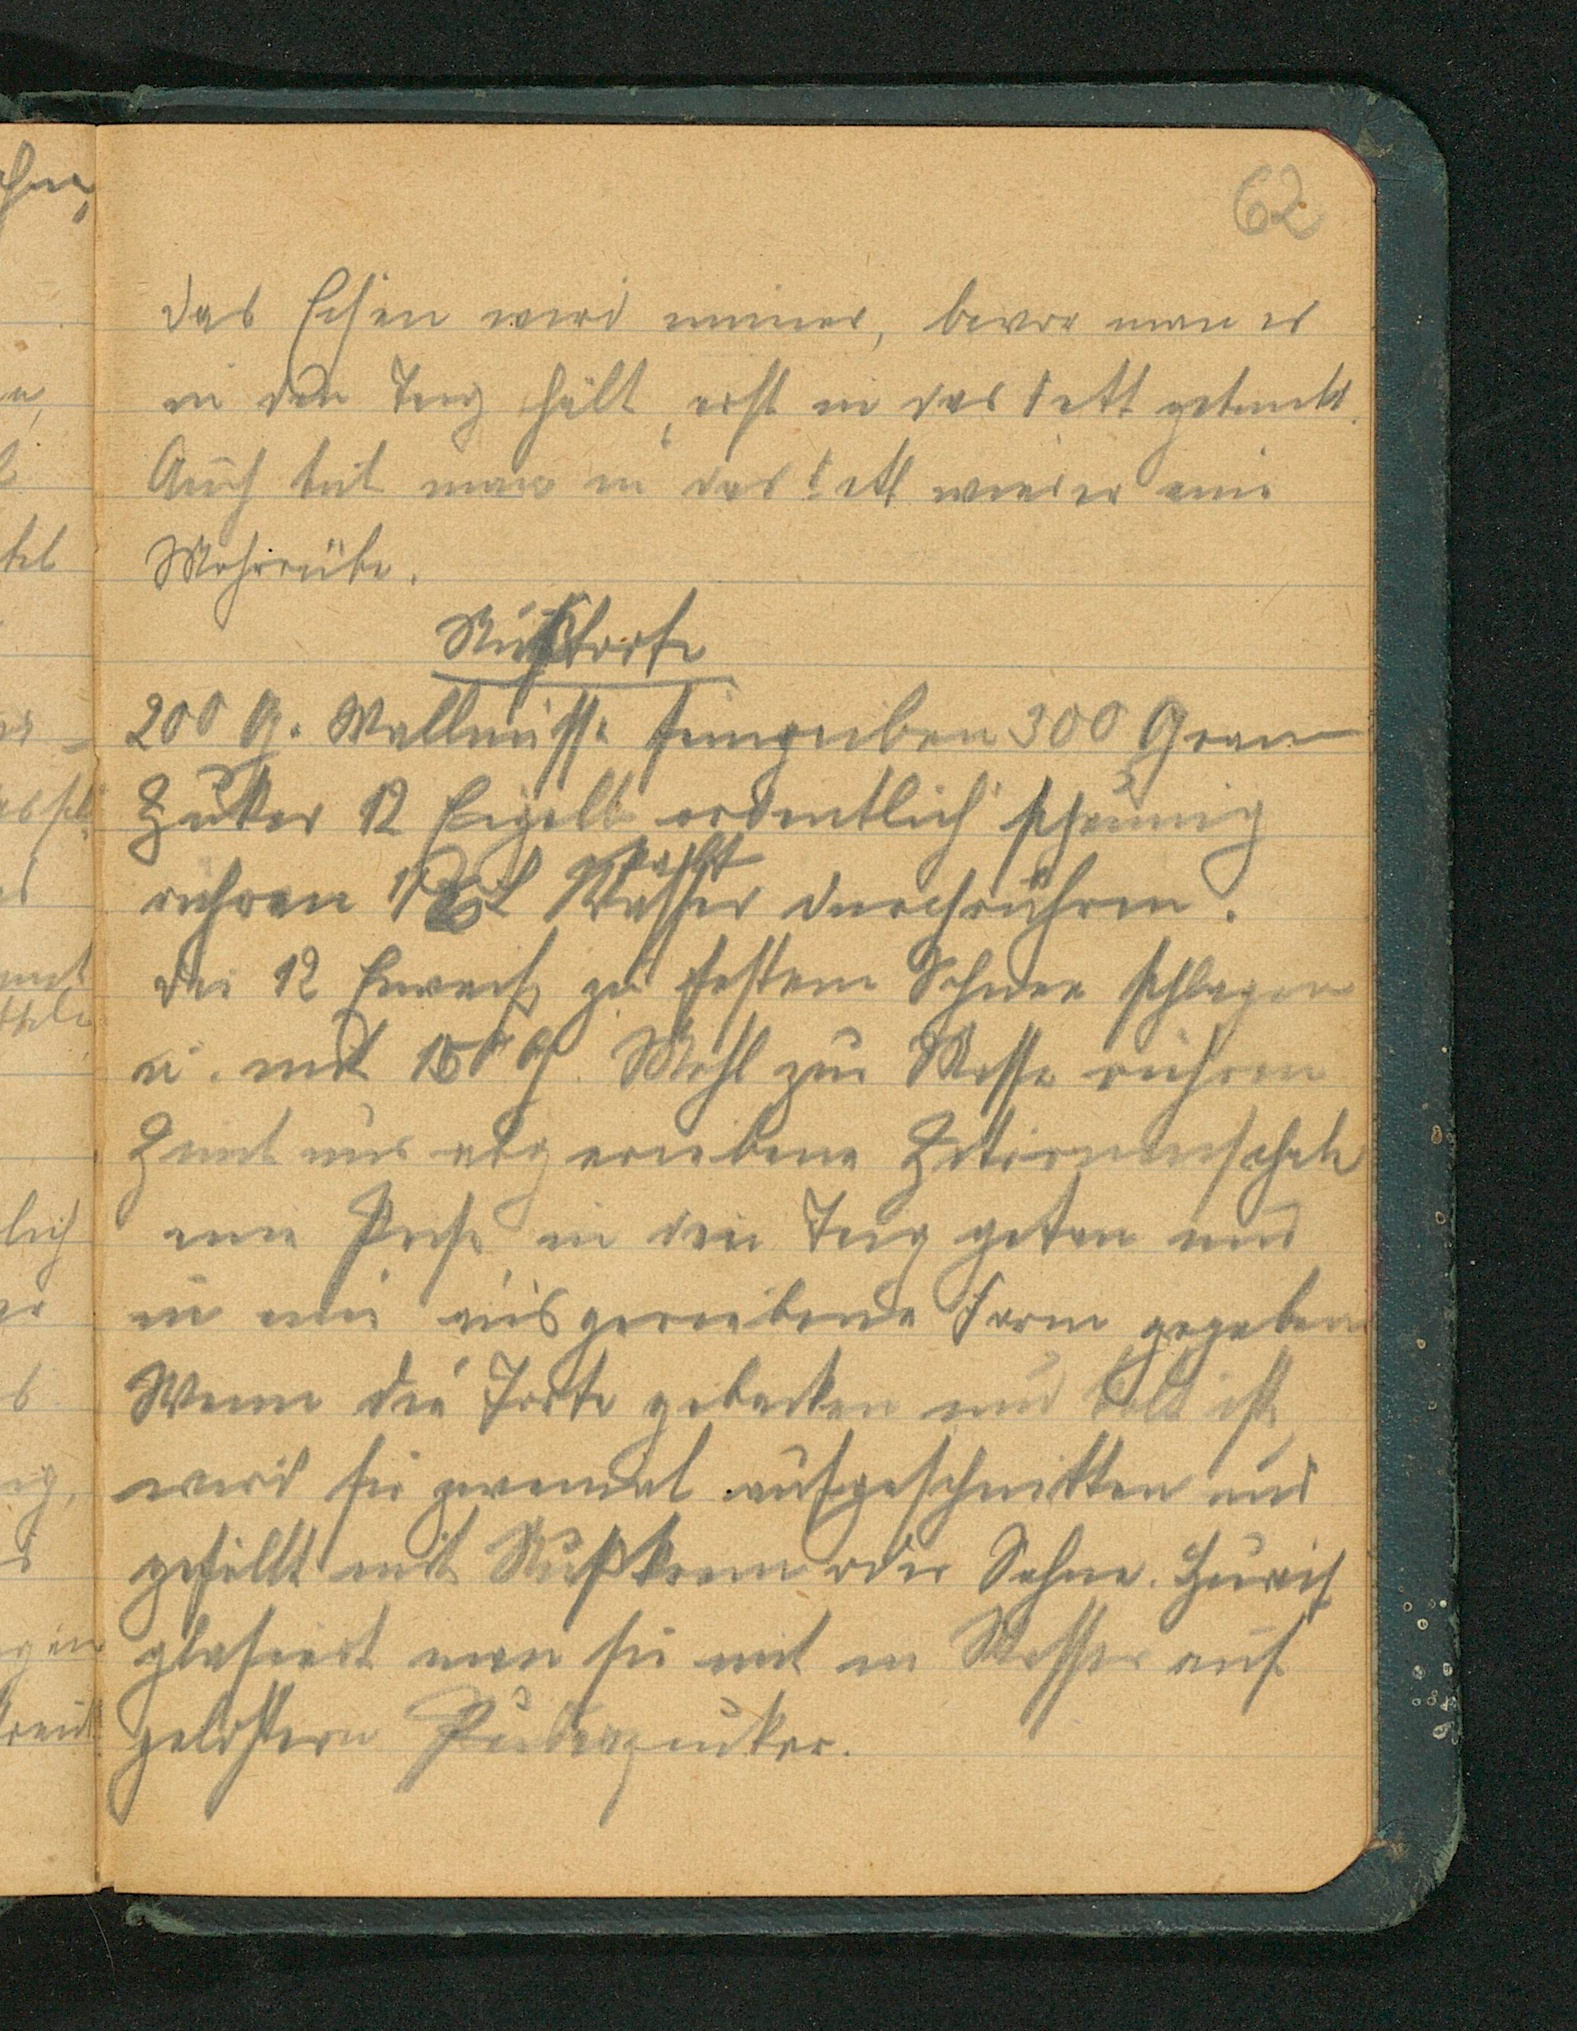 62
das Eisen wird immer, bevor man es
in den Teig hält, erst in das Fett getunkt.
Auch tut man in das Fett wieder eine
Mohrrübe.
Nußtorte
200 g. Wallnüsse feingerieben 300 Gram
Zuker 12 Eigelb ordentlich schaumig
rühren Wasser durchrühren.
die 12 Eiweiß zu festem Schnee schlagen
u. mit 150 g. Mehl zur Masse rühren
Zimt und abgeriebene Zitronenschale
eine Prise in den Teig getan und
in eine ausgeriebene Form gegeben
Wenn die Torte gebacken und kalt ist,
wird sie zweimal aufgeschnitten und
gefüllt mit Nußkrem oder Sahne.
glasiert man sie mit in Wasser auf
gelöstem Puderzuker.